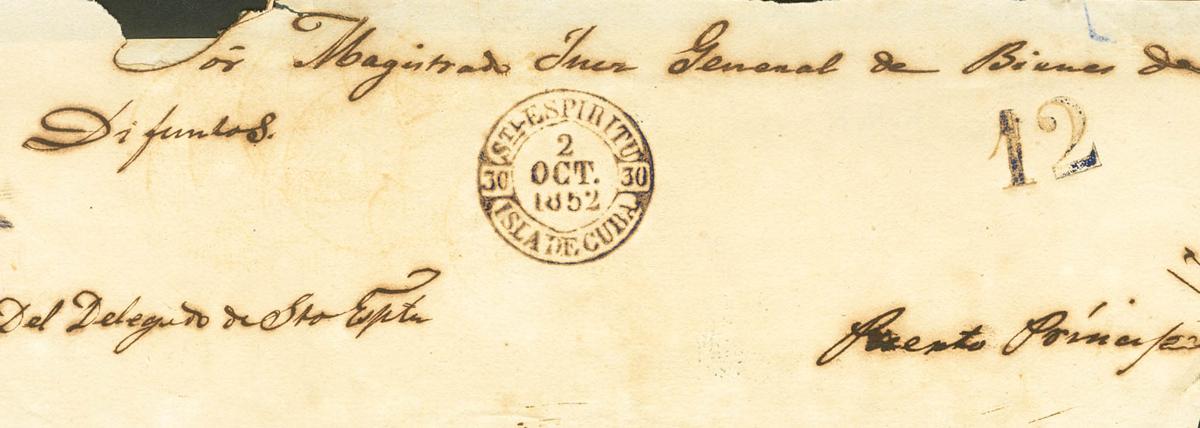 Sōr Magistrado Juez General de Bienes de
Difuntos.
STI-ESPIRITU
2
OCT.
1852
30
30
ISLA DE CUBA
12
Del Delegado de Sto Esptu
Puerto Príncipe